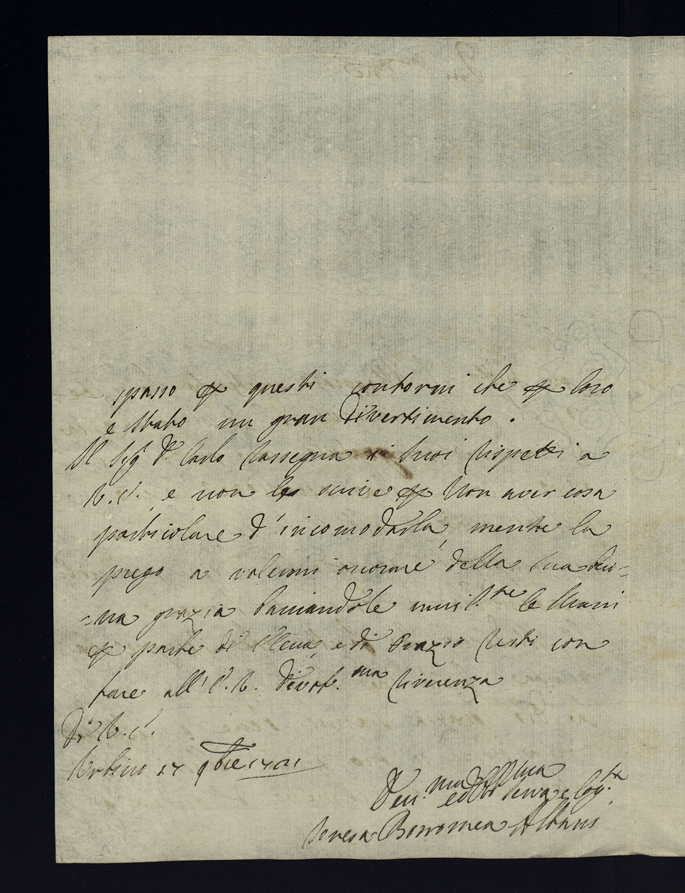 spasso p questi contorni che p loro
e stato un gran divertimento.
Il Sig D. Carlo rassegna i suoi rispetti a
V. E. e non le scrive p non aver cosa
particolare d'incomodarla, mentre la
prego a volermi onorare della sua buo=
=na grazia baciandole umil.te le mani
p parte di Elena, e di Orazio resto con
fare all'E. V. divot.ma riverenza
Di V. E.
Urbino 17 9bre 1721
Dev.ma
ed Obl serva e
Teresa Borromea Albani